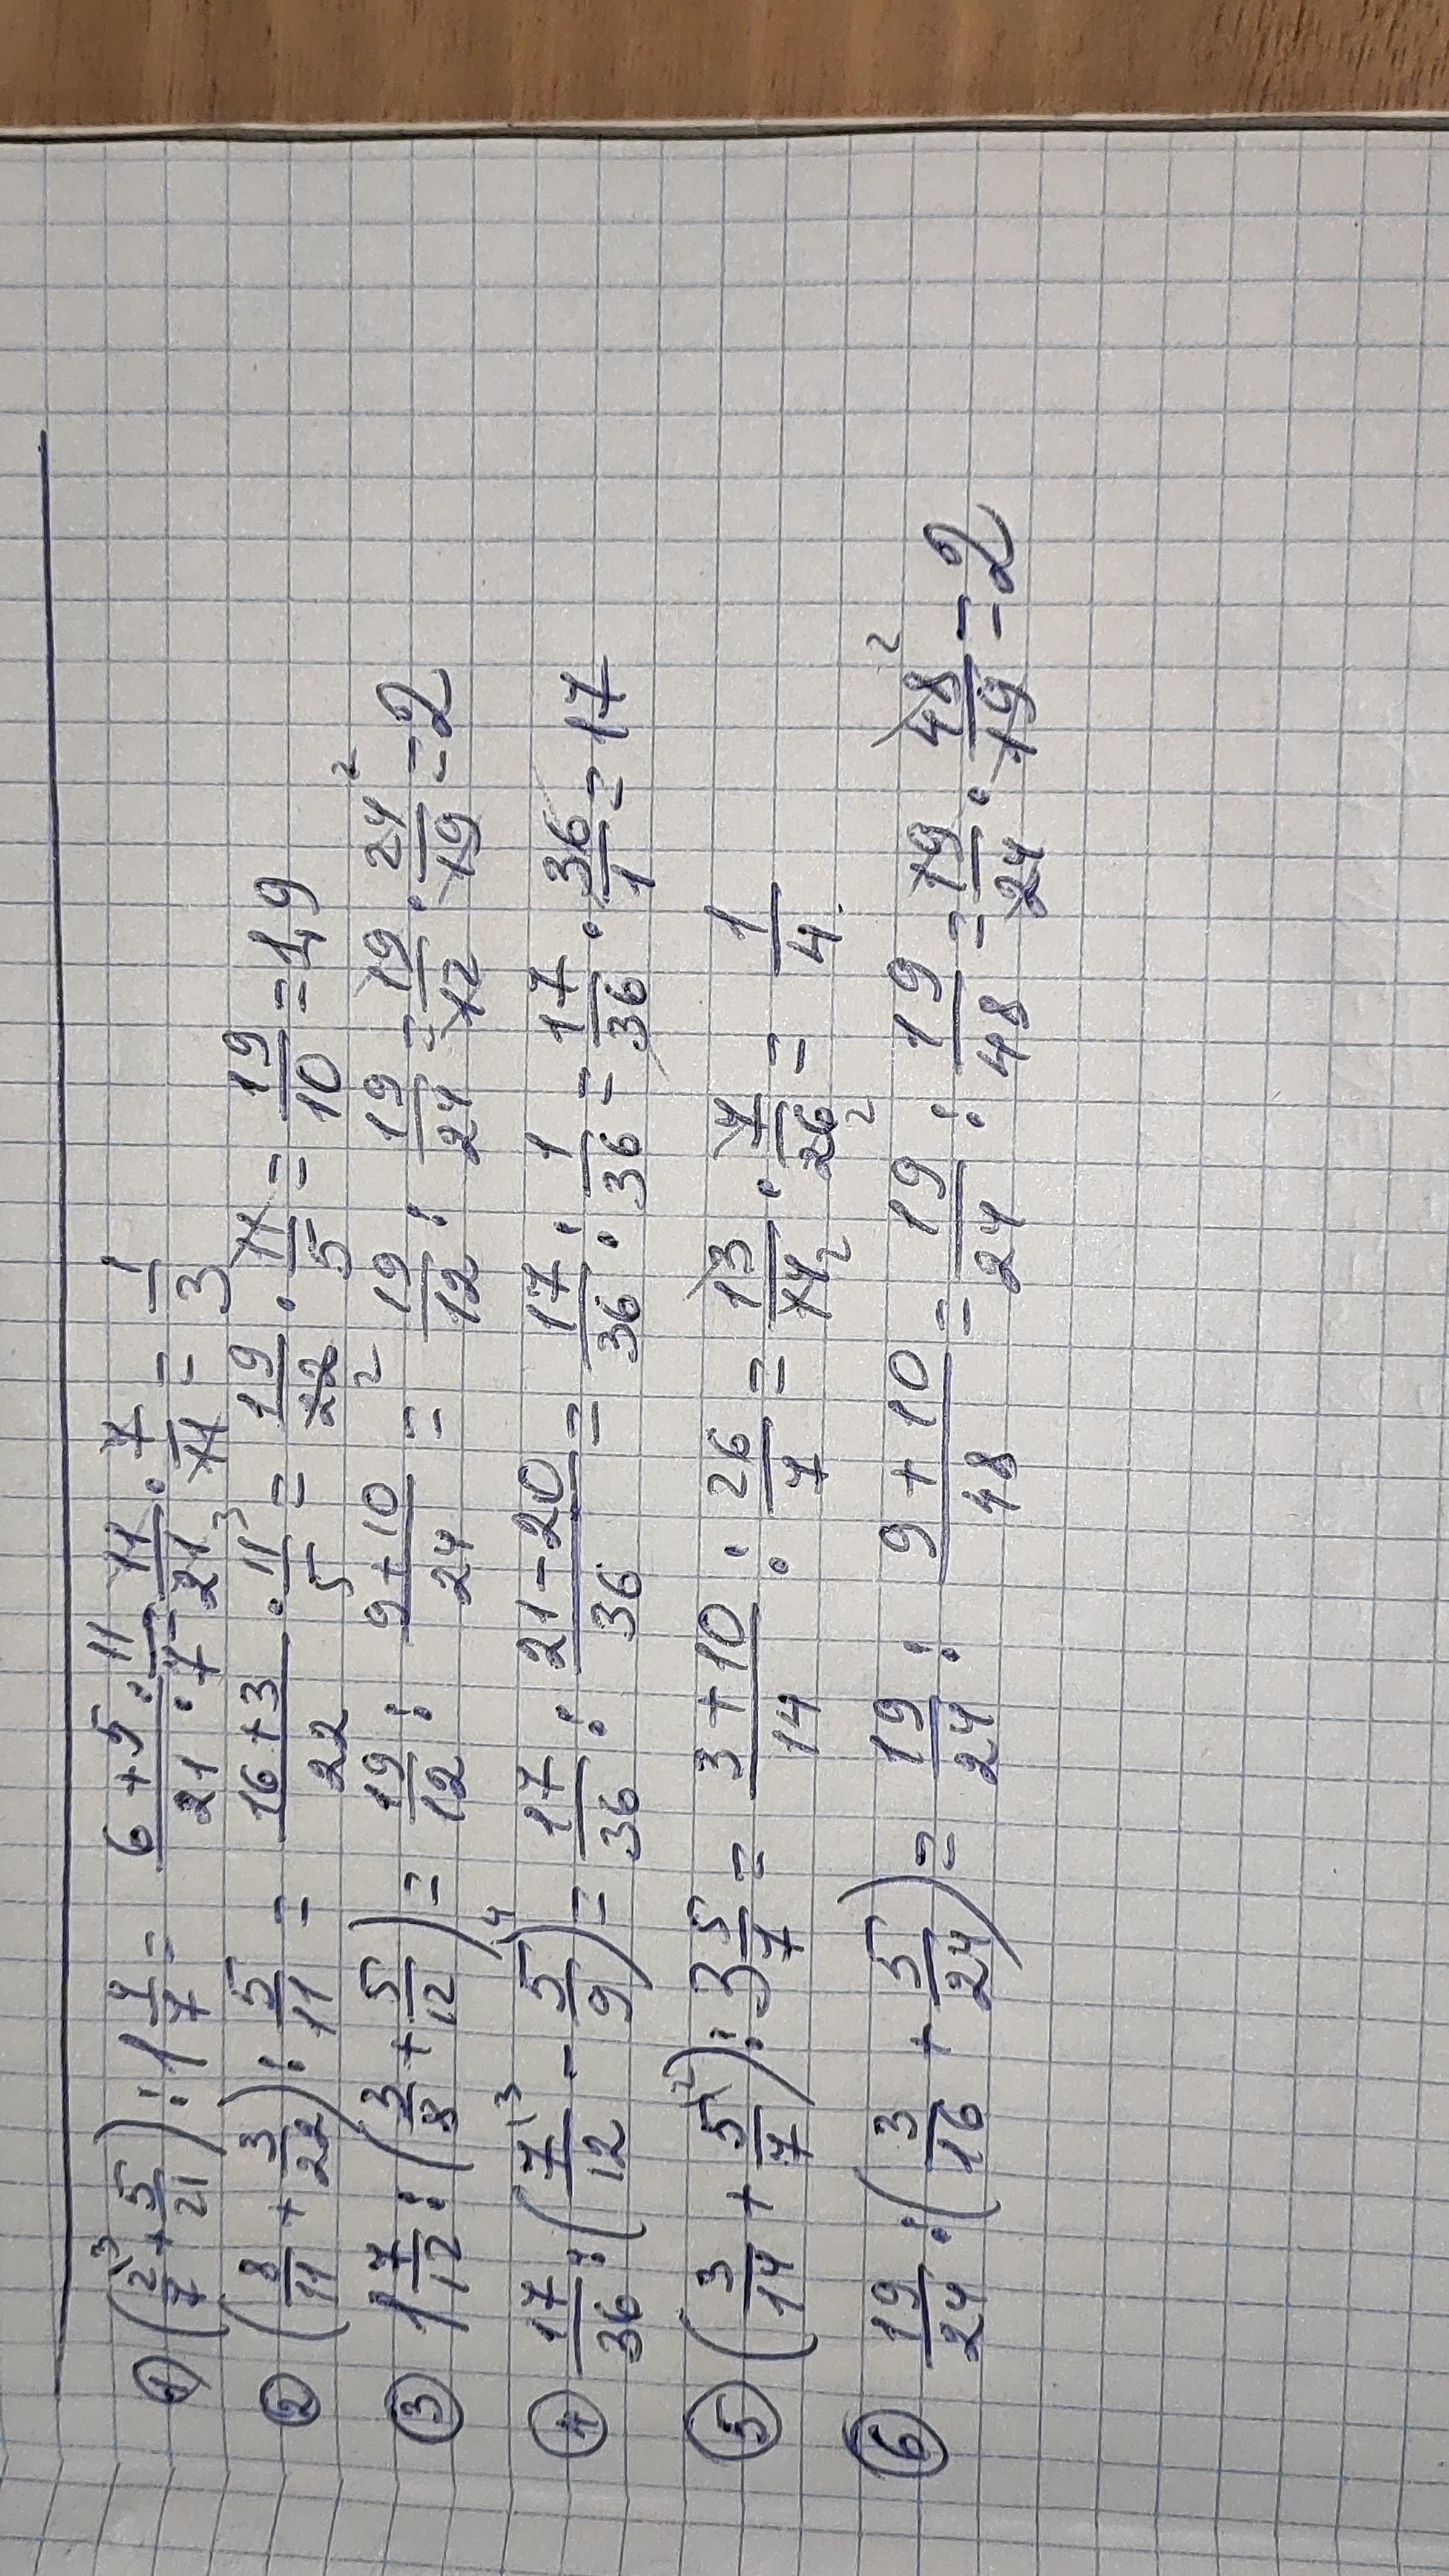 ① (2/7 ⁽³ + 5/21) : 1 4/7 = (6+5)/21 : 11/7 = 11/21 ₃ · 7/11 = 1/3
② (8/11 + 3/22) : 5/11 = (16+3)/22 · 11/5 = 19/22 ₂ · 11/5 = 19/10 = 1,9
③ 1 7/12 : (3/8 + 5/12) = 19/12 : (9+10)/24 = 19/12 : 19/24 = 19/12 · 24/19 ² = 2
④ 17/36 : (7/12 ⁽³ - 5/9 ⁽⁴) = 17/36 : (21-20)/36 = 17/36 : 1/36 = 17/36 · 36/1 = 17
⑤ (3/14 + 5/7 ⁽²) : 3 5/7 = (3+10)/14 : 26/7 = 13/14 ₂ · 7/26 ₂ = 1/4
⑥ 19/24 : (3/16 + 5/24) = 19/24 : (9+10)/48 = 19/24 : 19/48 = 19/24 · 48/19 ² = 2